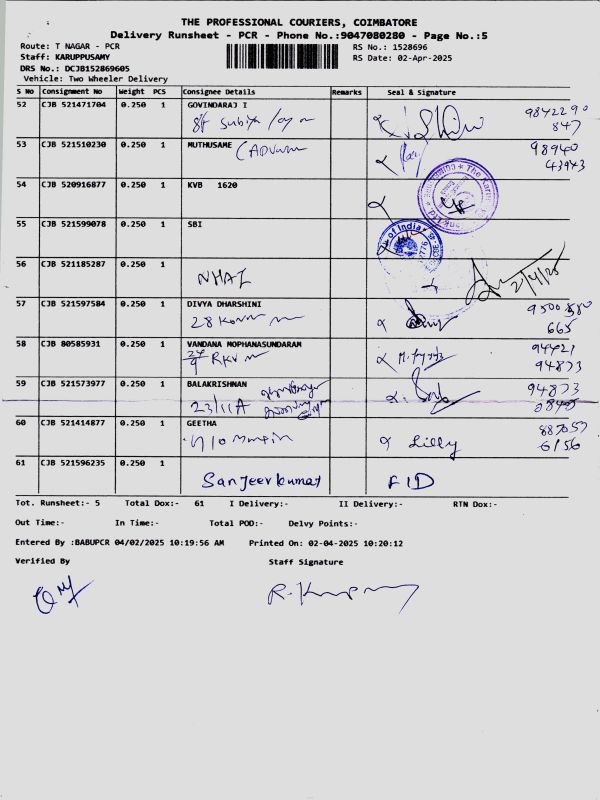 THE PROFESSIONAL COURIERS, COIMBATORE
Delivery Runsheet - PCR - Phone No.:9047080280 - Page No.:5
Route: T NAGAR - PCR
RS No.: 1528696
Staff: KARUPPUSAMY
RS Date: 02-Apr-2025
DRS No.: DCJB152869605
Vehicle: Two Wheeler Delivery
S No Consignment No Weight PCS Consignee Details Remarks Seal & Signature
52 CJB 521471704 0.250 1 GOVINDARAJ I
9842290
847
53 CJB 521510230 0.250 1 MUTHUSAME
98940
43943
54 CJB 520916877 0.250 1 KVB 1620
55 CJB 521599078 0.250 1 SBI
of India
56 CJB 521185287 0.250 1
NHAI
2/4/25
57 CJB 521597584 0.250 1 DIVYA DHARSHINI
28
665
58 CJB 80585931 0.250 1 VANDANA MOPHANASUNDARAM
RKV
94421
94873
59 CJB 521573977 0.250 1 BALAKRISHNAN
23/11A
94873
60 CJB 521414877 0.250 1 GEETHA
Lilly
61 CJB 521596235 0.250 1
Sanjeevkumar FID
Tot. Runsheet:- 5 Total Dox:- 61 I Delivery:- II Delivery:- RTN Dox:-
Out Time:- In Time:- Total POD:- Delvy Points:-
Entered By :BABUPCR 04/02/2025 10:19:56 AM Printed On: 02-04-2025 10:20:12
Verified By Staff Signature